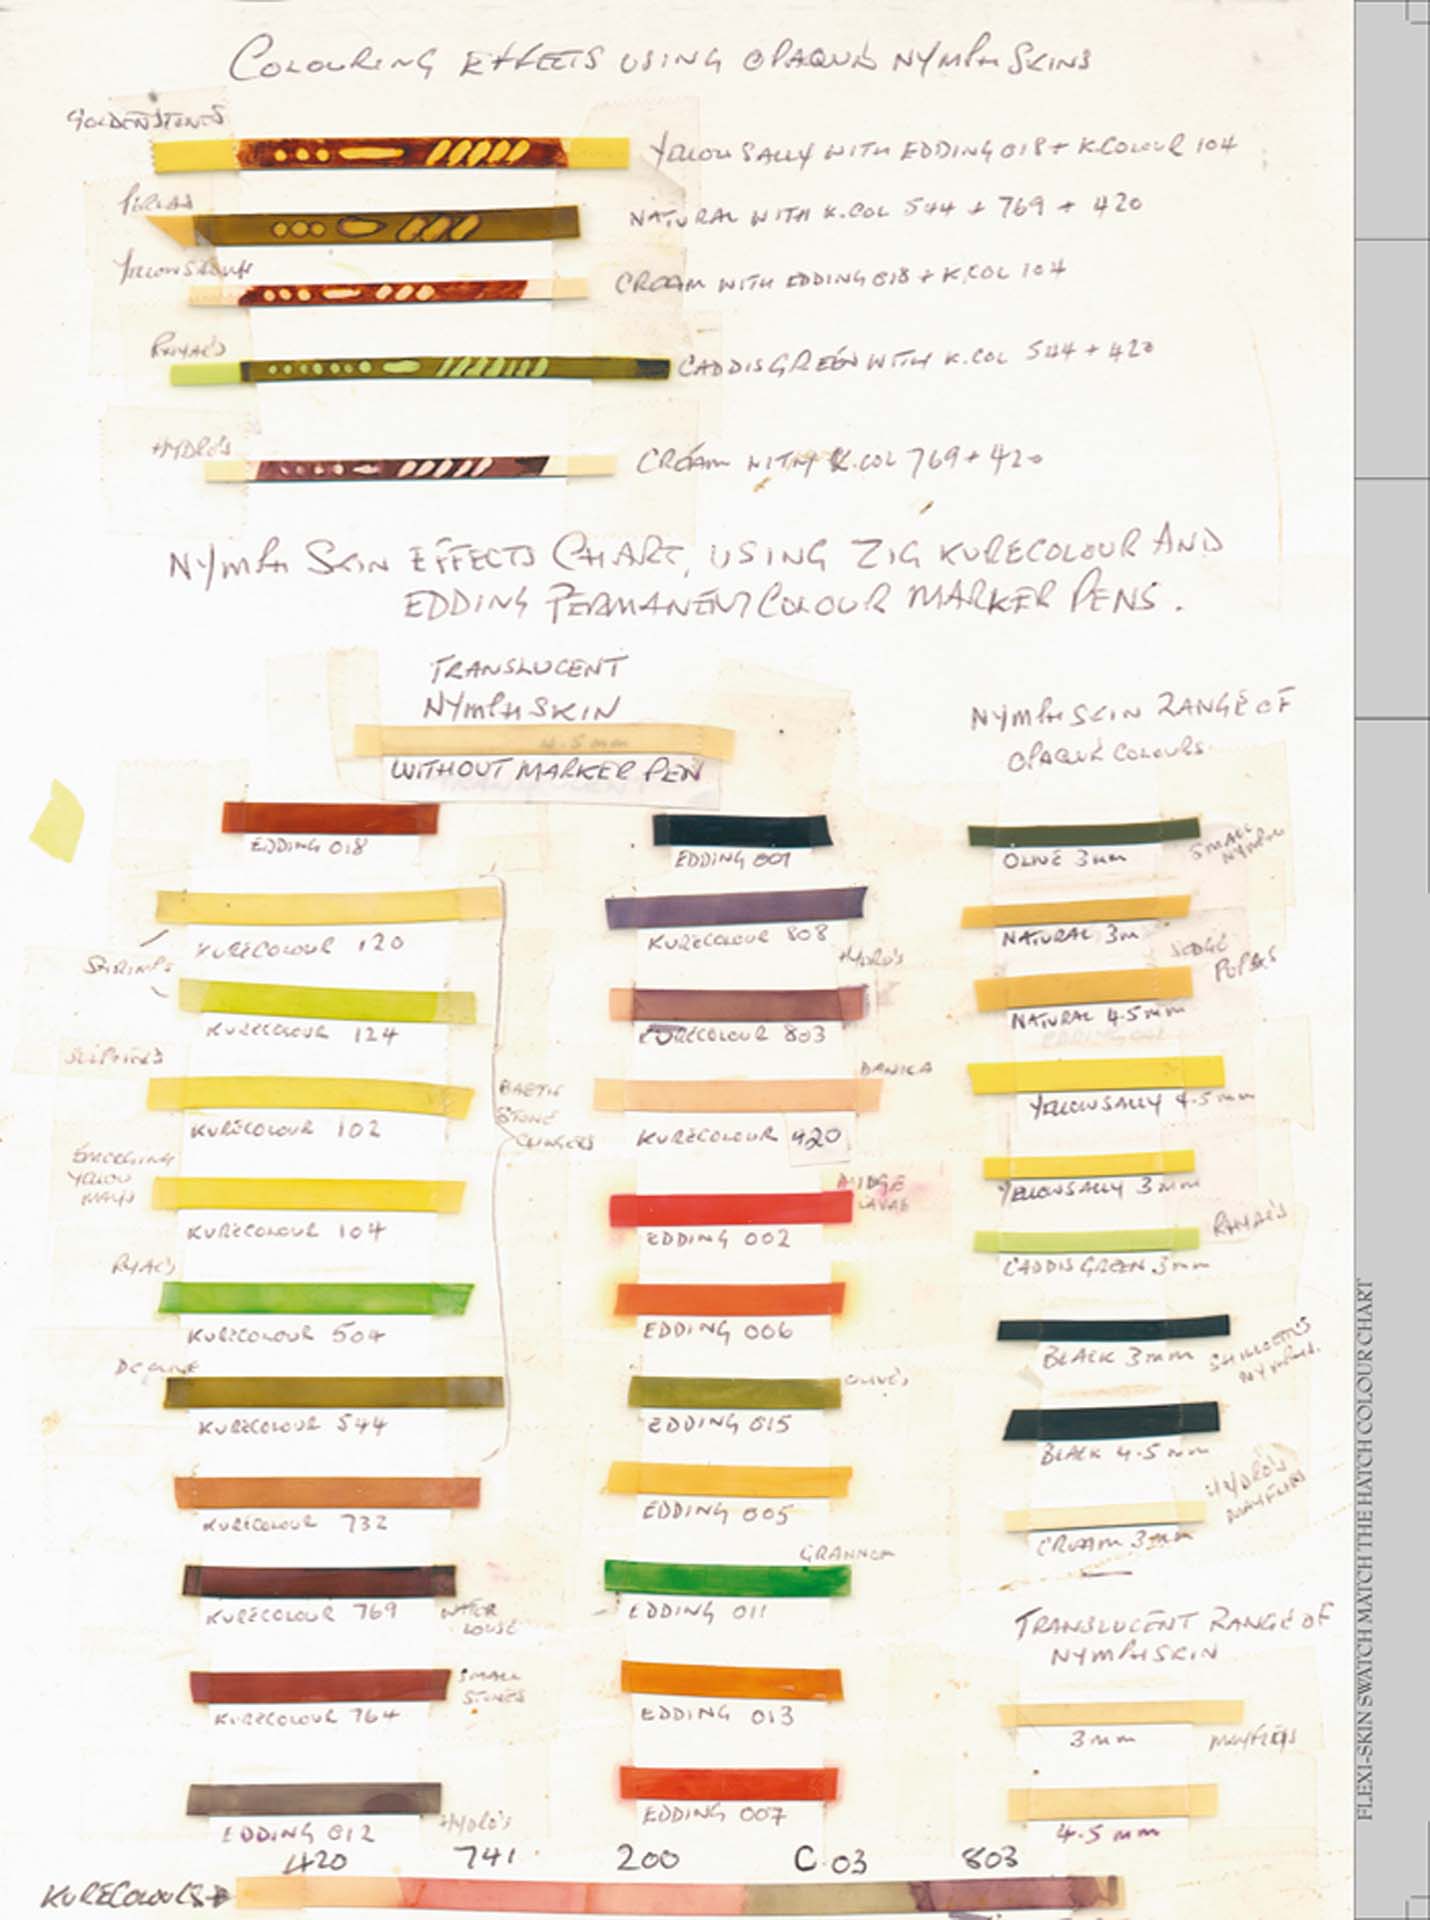 COLOURING EFFECTS USING OPAQUE NYMPH SKINS
GOLDENSTONES
YELLOW SALLY WITH EDDING 018 + K.COLOUR 104
PERLAS
NATURAL WITH K.COL 544 + 769 + 420
CREAM WITH EDDING 018 + K.COL 104
RHYAC'S
CADDIS GREEN WITH K.COL 544 + 420
HYDRO'S
CREAM WITH K.COL 769 + 420
NYMPH SKIN EFFECTS CHART, USING ZIG KURECOLOUR AND
EDDING PERMANENT COLOUR MARKER PENS.
TRANSLUCENT
NYMPH SKIN
4.5mm
WITHOUT MARKER PEN
EDDING 018
KURECOLOUR 120
SHRIMPS
KURECOLOUR 124
KURECOLOUR 102
EMERGING
YELLOW
MAYS
KURECOLOUR 104
RYAC'S
KURECOLOUR 504
KURECOLOUR 544
BAETIS
STONE
CLINGERS
KURECOLOUR 732
KURECOLOUR 769
WATER
LOUSE
KURECOLOUR 764
SMALL
STONES
EDDING 012
HYDRO'S
EDDING 001
KURECOLOUR 808
HYDRO'S
KURECOLOUR 803
DANICA
KURECOLOUR 420
MIDGE
LAVAE
EDDING 002
EDDING 006
OLIVE'S
EDDING 015
EDDING 005
GRANNOM
EDDING 011
EDDING 013
EDDING 007
NYMPH SKIN RANGE OF
OPAQUE COLOURS.
OLIVE 3mm
SMALL
NYMPH
NATURAL 3m
SEDGE
PUPAS
NATURAL 4.5mm
YELLOW SALLY 4.5mm
YELLOW SALLY 3mm
RHYAC'S
CADDIS GREEN 3mm
BLACK 3mm
BLACK 4.5mm
HYDRO'S
MAYFLIES
CREAM 3mm
TRANSLUCENT RANGE OF
NYMPH SKIN
3mm
MAYFLIES
4.5mm
420 741 200 C.03 803
KURECOLOURS
FLEXI-SKIN SWATCH MATCH THE HATCH COLOUR CHART